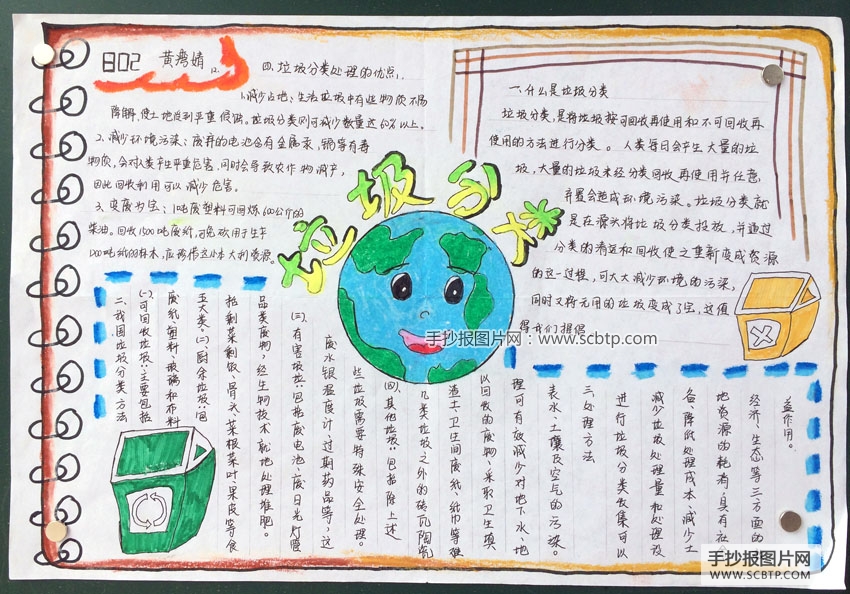 802 黄湾婧 12.
四.垃圾分类处理的优点:
1.减少占地:生活垃圾中有些物质不易
降解,使土地受到严重侵蚀。垃圾分类则可减少数量达60%以上。
2.减少环境污染:废弃的电池含有金属汞,镉等有毒
物质,会对人类产生严重危害,同时会导致农作物减产,
因此回收利用可以减少危害。
3.变废为宝:1吨废塑料可回炼600公斤的
柴油。回收1500吨废纸,可免砍用于生产
1200吨纸的林木,
垃圾分类
一.什么是垃圾分类
垃圾分类,是将垃圾按可回收再使用和不可回收再
使用的方法进行分类。人类每日会产生大量的垃
圾,大量的垃圾未经分类回收再使用并任意
弃置会造成环境污染。垃圾分类就
是在源头将垃圾分类投放,并通过
分类的清运和回收使之重新变成资源
的这一过程,可大大减少环境的污染,
同时又将无用的垃圾变成了宝,这值
得我们提倡
手抄报图片网:www.scbtp.com
二.我国垃圾分类方法
(一)可回收垃圾:主要包括
废纸、塑料、玻璃和布料
五大类。(二)厨余垃圾:包
括剩菜剩饭、骨头、菜根菜叶、果皮等食
品类废物,经生物技术就地处理堆肥。
(三)有害垃圾:包括废电池、废日光灯管
废水银温度计、过期药品等,这
些垃圾需要特殊安全处理。
(四)其他垃圾:包括除上述
几类垃圾之外的砖瓦陶瓷
渣土、卫生间废纸、纸巾等难
以回收的废物,采取卫生填
埋可有效减少对地下水、地
表水、土壤及空气的污染。
三.处理方法
进行垃圾分类收集可以
减少垃圾处理量和处理设
备,降低处理成本,减少土
地资源的耗有,具有社会
经济、生态等三方面的
益作用。
手抄报图片网
WWW.SCBTP.COM